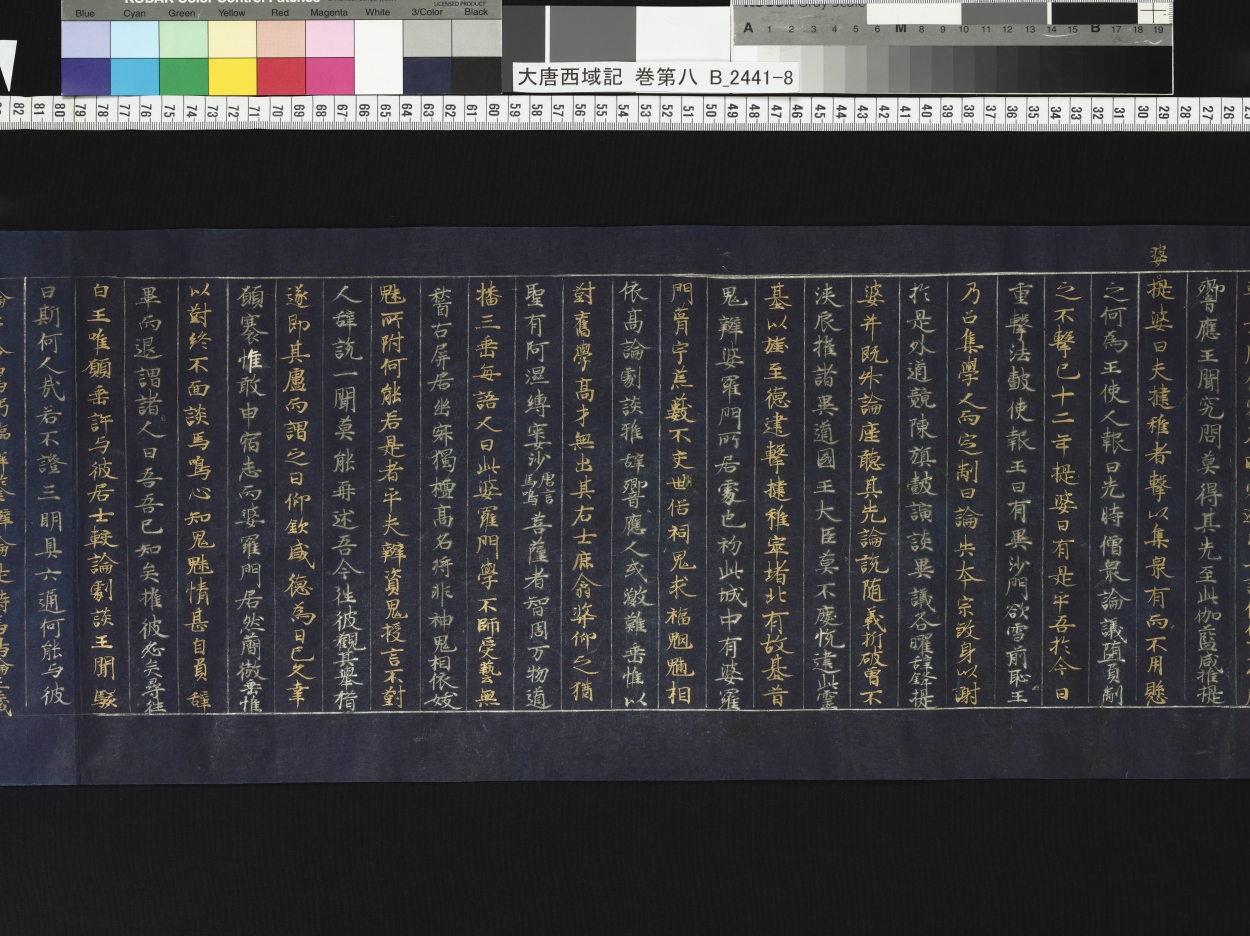 Blue Cyan Green Yellow Red Magenta White 3/Color Black
LICENSED PRODUCT
大唐西域記 巻第八 B_2441-8
A 1 2 3 4 5 6 M 8 9 10 11 12 13 14 15 B 17 18 19
82 81 80 79 78 77 76 75 74 73 72 71 70 69 68 67 66 65 64 63 62 61 60 59 58 57 56 55 54 53 52 51 50 49 48 47 46 45 44 43 42 41 40 39 38 37 36 35 34 33 32 31 30 29 28 27 26
響應王聞究問莫得其先至此伽藍咸推提
婆提婆曰夫揵稚者擊以集衆有而不用懸
之何為王使人報曰先時僧衆論議墮負制
之不擊已十二年提婆曰有是乎吾於今日
重擊法皷使報王曰有異沙門欲雪前恥王
乃召集學人而定制曰論失本宗致身以謝
於是外道競陳旗皷諠談異議各曜辞鋒提
婆并既升論座聽其先論説随義折破曾不
浹辰摧諸異道國王大臣莫不慶悅建此靈
基以旌至德建擊揵稚窣堵北有故基昔
鬼辯婆羅門所居處也初此城中有婆羅
門葺宇荒藪不交世俗祠鬼求福魍魎相
依高論劇談雅辞響應人或激難垂惟以
對舊學高才無出其右士庶翕然仰之猶
聖有阿濕縛窶沙唐言馬鳴菩薩者智周万物道
播三乘每語人曰此婆羅門學不師受藝無
稽古屏居幽寂獨擅高名將非神鬼相依妖
魅所附何能若是者乎夫辯資鬼授言不對
人辞説一聞莫能再述吾今往彼觀其舉措
遂即其廬而謂之曰仰欽盛德為日已久幸
願褰惟敢申宿志而婆羅門居然蕳傲垂惟
以對終不面談馬鳴心知鬼魅情甚自負辞
畢而退謂諸人曰吾吾已知矣摧彼必矣尋往
白王唯願垂許与彼居士較論劇談王聞駭
曰期何人哉若不證三明具六通何能与彼